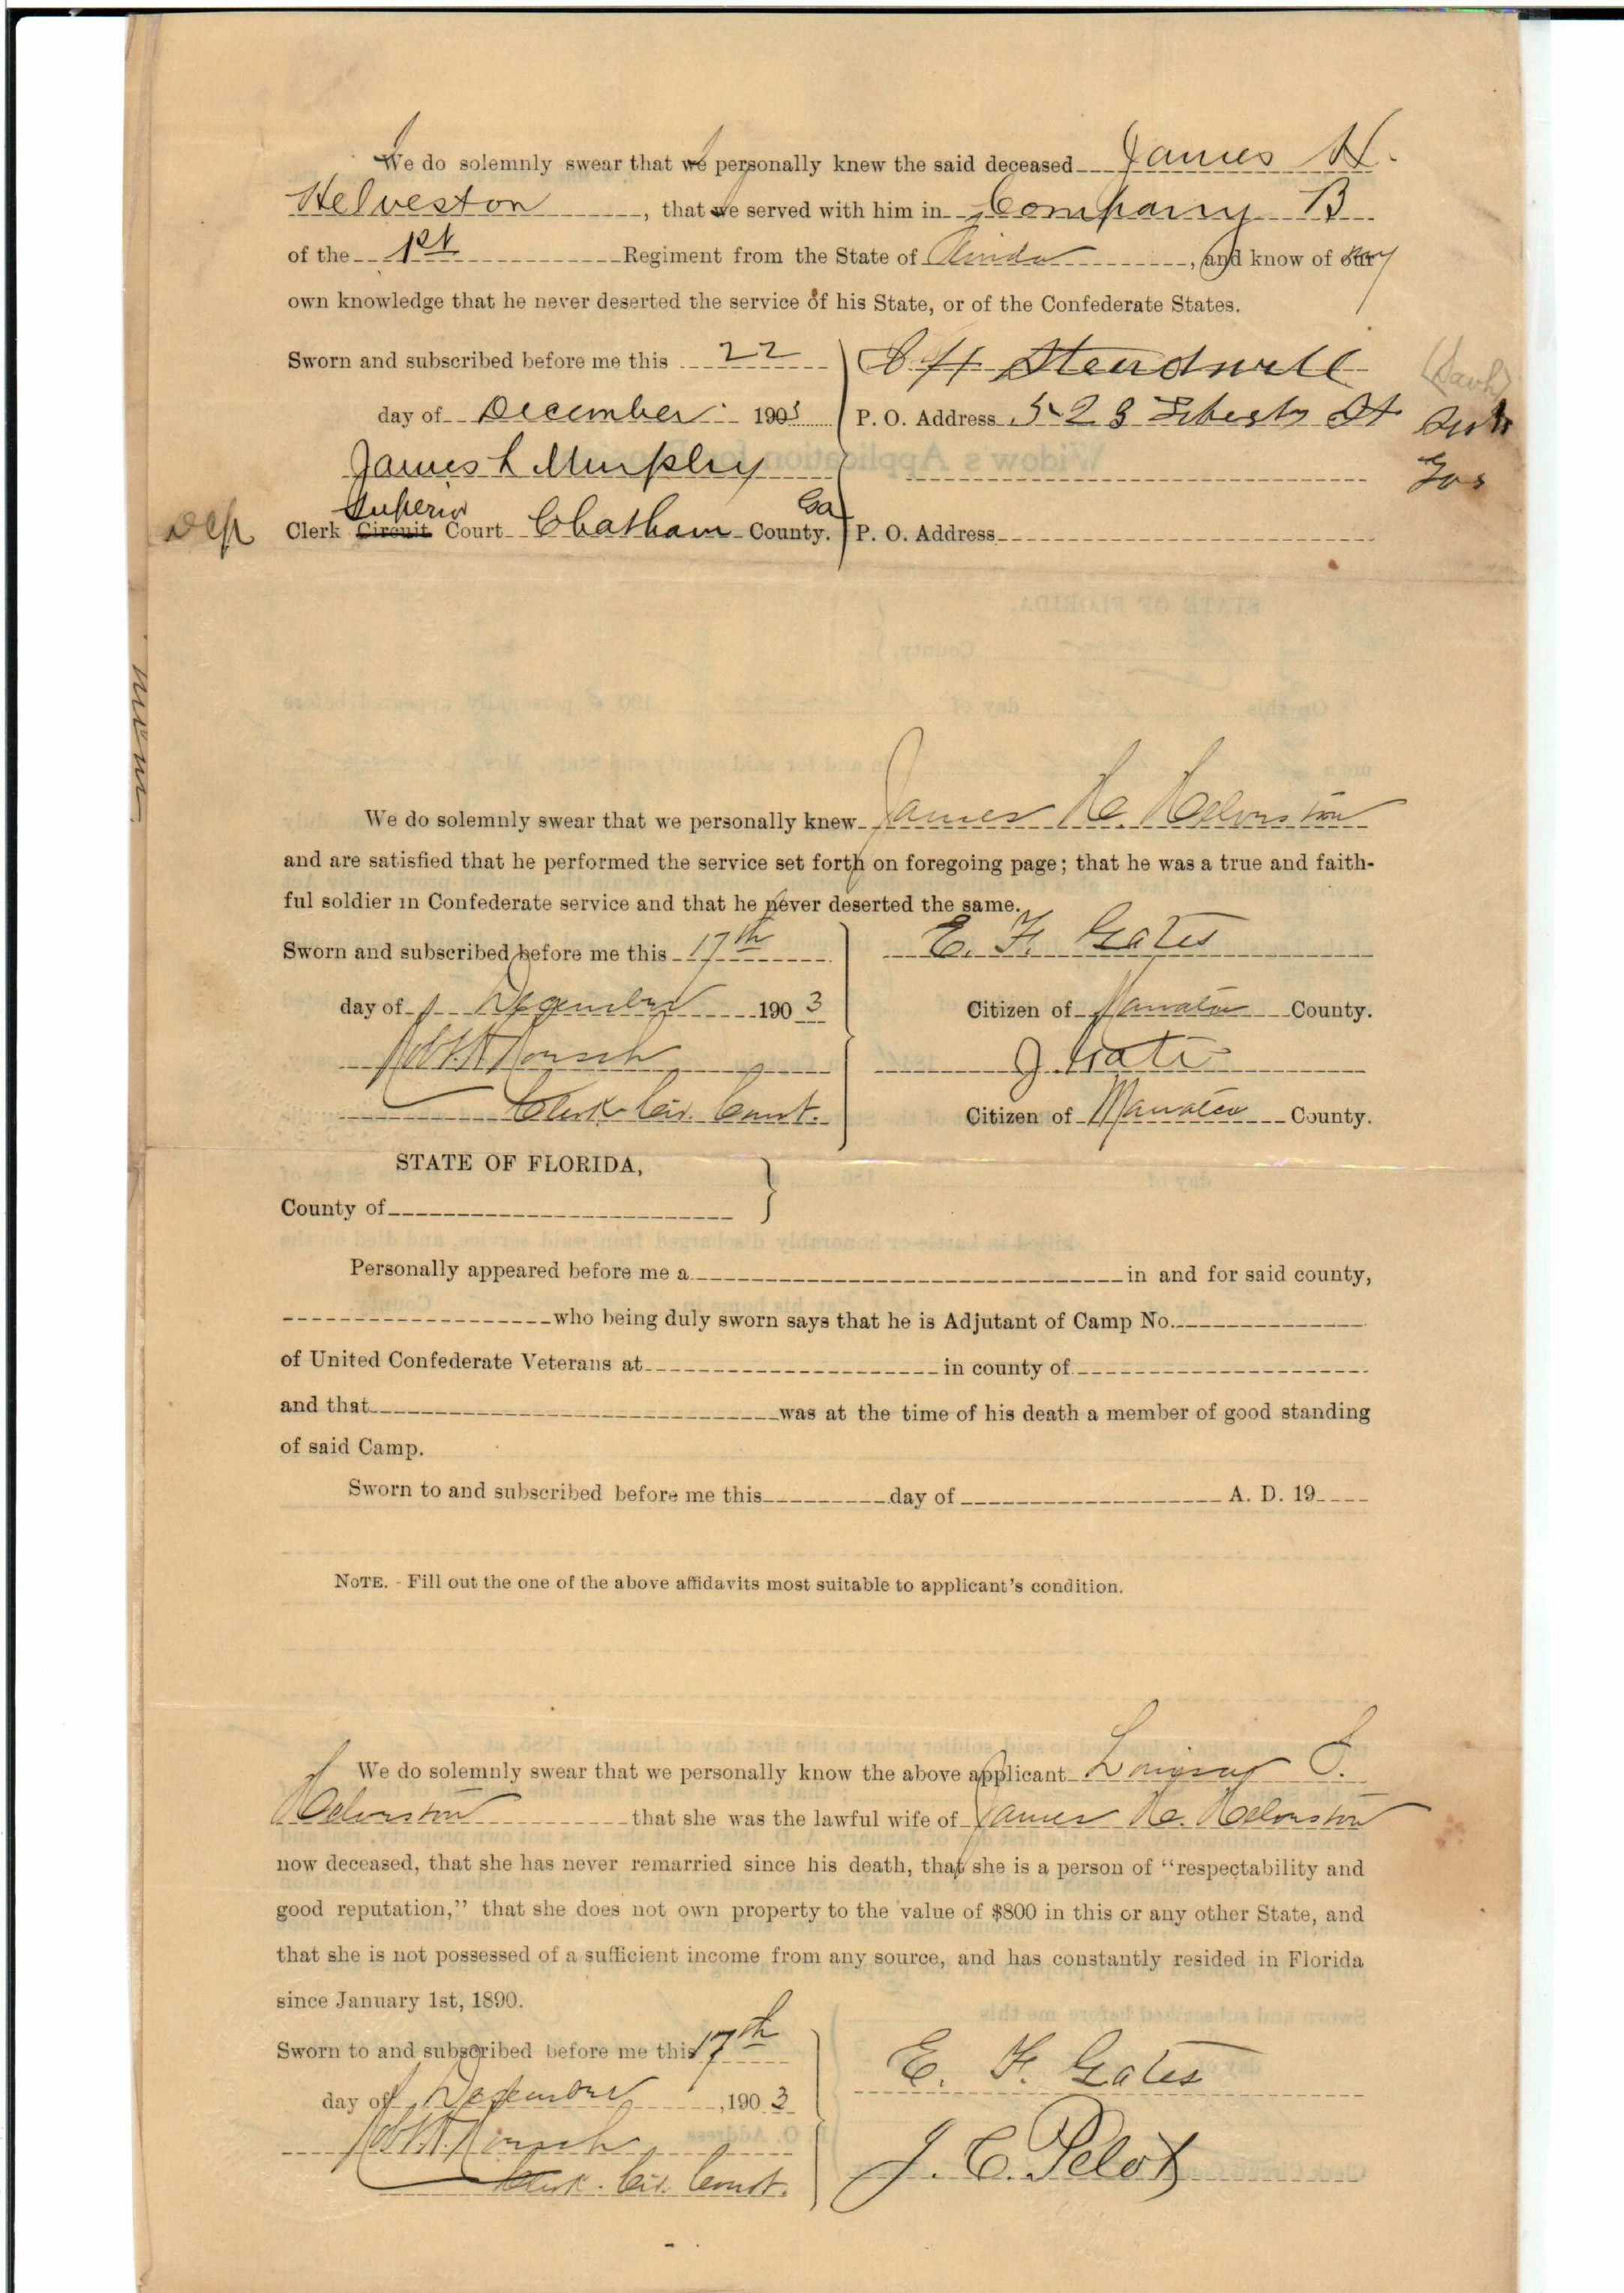 I We do solemnly swear that we I personally knew the said deceased James H.
Helveston, that we I served with him in Company B
of the 1st Regiment from the State of Florida, and know of our my
own knowledge that he never deserted the service of his State, or of the Confederate States.
Sworn and subscribed before me this 22
day of December 1903
P. O. Address 523 Liberty St
James L Murphy
Superior Ga
Dep Clerk Circuit Court Chatham County.
P. O. Address
We do solemnly swear that we personally knew James H. Helveston
and are satisfied that he performed the service set forth on foregoing page; that he was a true and faith-
ful soldier in Confederate service and that he never deserted the same.
Sworn and subscribed before me this 17th
E. F. Gates
day of December 1903
Citizen of Manatee County.
J. Gates
Clerk Cir. Court.
Citizen of Manatee County.
STATE OF FLORIDA,
County of
Personally appeared before me a in and for said county,
who being duly sworn says that he is Adjutant of Camp No.
of United Confederate Veterans at in county of
and that was at the time of his death a member of good standing
of said Camp.
Sworn to and subscribed before me this day of A. D. 19
NOTE. - Fill out the one of the above affidavits most suitable to applicant's condition.
We do solemnly swear that we personally know the above applicant
Helveston that she was the lawful wife of James H. Helveston
now deceased, that she has never remarried since his death, that she is a person of "respectability and
good reputation," that she does not own property to the value of $800 in this or any other State, and
that she is not possessed of a sufficient income from any source, and has constantly resided in Florida
since January 1st, 1890.
Sworn to and subscribed before me this 17th
E. F. Gates
day of December, 1903
J. C. Pelot
Clerk. Cir. Court.